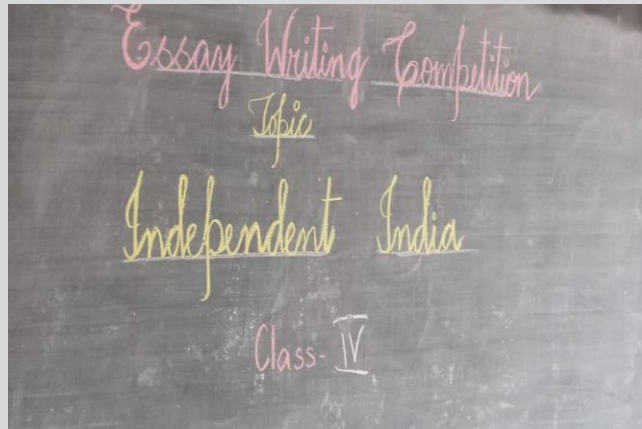 Essay Writing Competition
Topic
Independent India
Class- IV